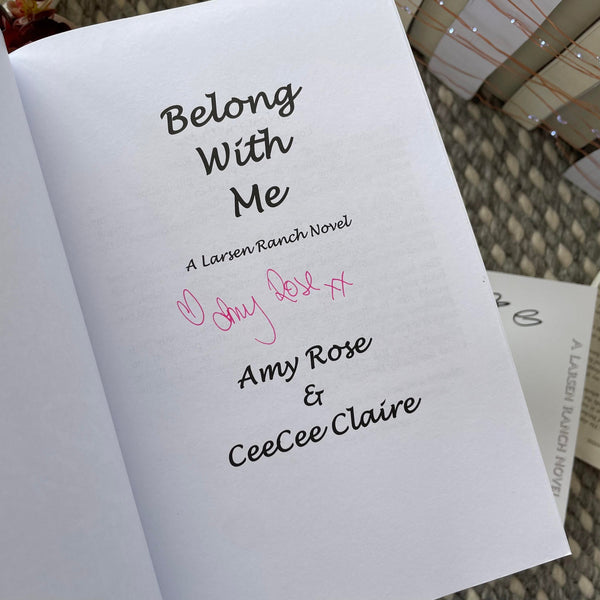 Belong
With
Me
A Larsen Ranch Novel
♡ Amy Rose xx
Amy Rose
&
CeeCee Claire
A LARSEN RANCH NOVEL